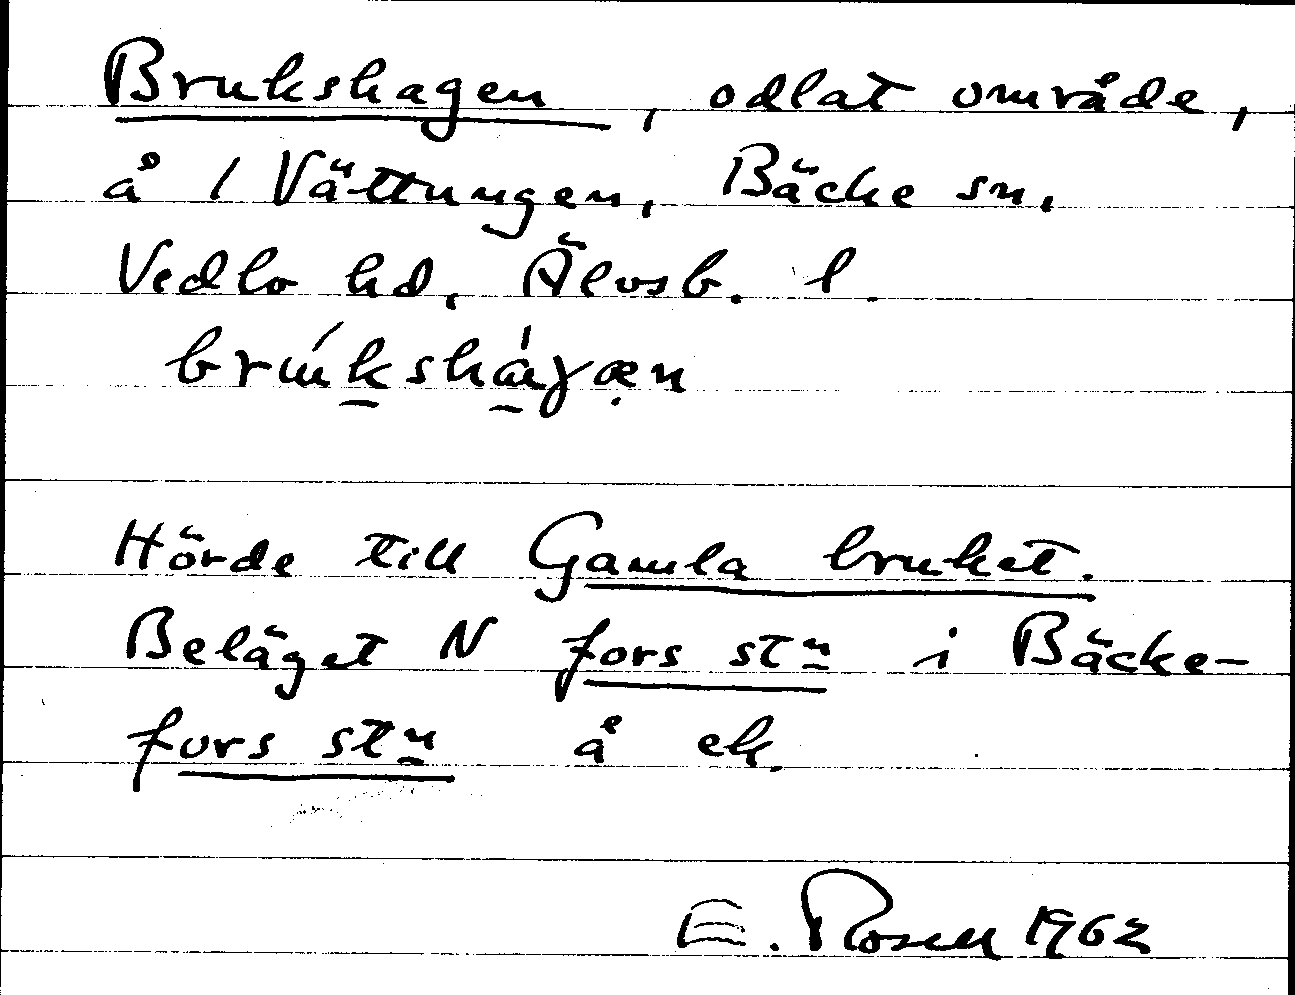 Brukshagen, odlat område,
å 1 Vättungen, Bäcke sn,
Vedbo hd, Älvsb. l.
Hörde till Gamla bruket.
Beläget N fors stn i Bäcke-
fors stn å ek.
E. Rosell 1962